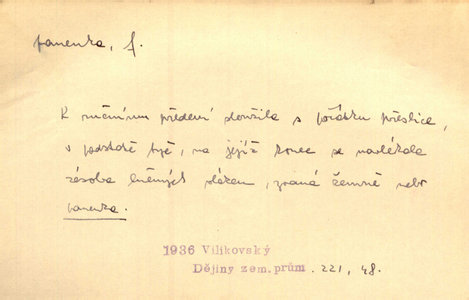 panenka, f.
K ručnímu předení sloužila s počátku přeslice,
v podstatě tyč, na jejíž konec se navlékala
zásoba lněných vláken, zvaná žemně nebo
panenka.
1936 Vilikovský
Dějiny zem. prům. 221, 48.